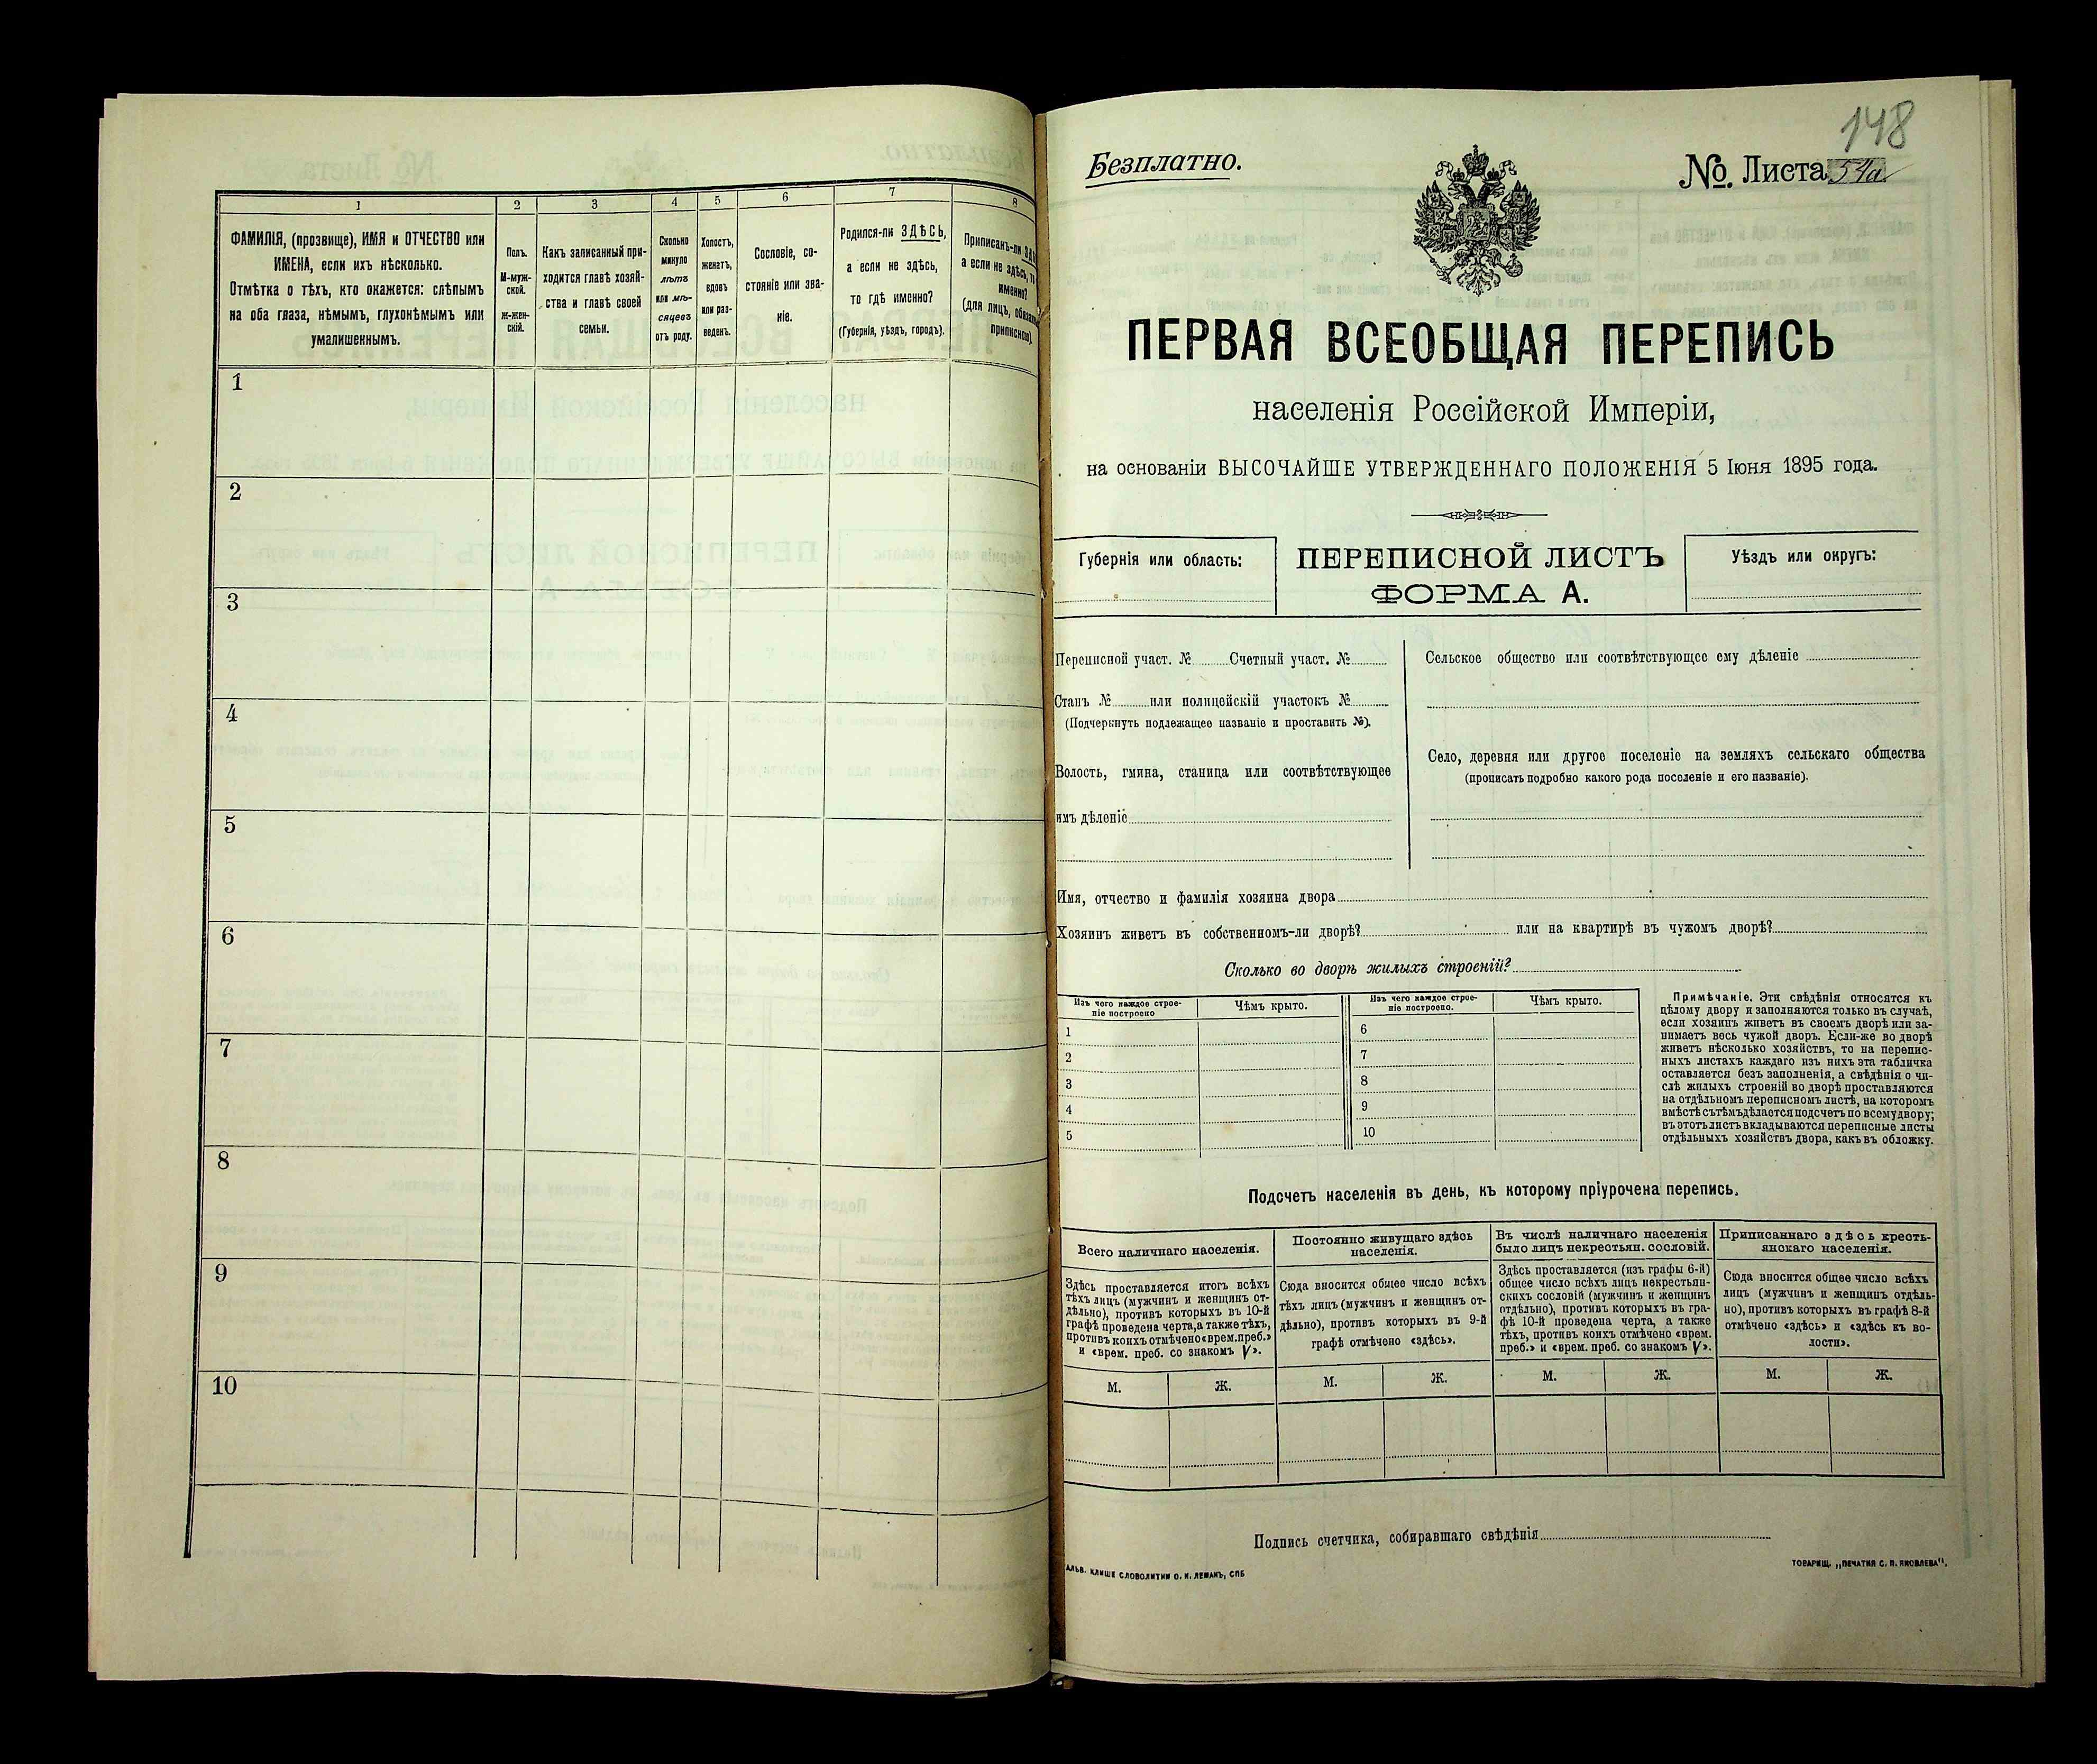 1
2
3
4
5
6
7
8
ФАМИЛІЯ, (прозвище), ИМЯ и ОТЧЕСТВО или
ИМЕНА, если ихъ нѣсколько.
Отмѣтка о тѣхъ, кто окажется: слѣпымъ
на оба глаза, нѣмымъ, глухонѣмымъ или
умалишеннымъ.
Полъ.
М-муж-
ской.
ж-жен-
скій.
Какъ записанный при-
ходится главѣ хозяй-
ства и главѣ своей
семьи.
Сколько
минуло
лѣтъ
или мѣ-
сяцевъ
отъ роду.
Холостъ,
женатъ,
вдовъ
или раз-
веденъ.
Сословіе, со-
стояніе или зва-
ніе.
Родился-ли ЗДѢСЬ,
а если не здѣсь,
то гдѣ именно?
(Губернія, уѣздъ, городъ).
Приписанъ-ли
а если не здѣсь, то
именно?
(для лицъ,
припискою).
1
2
3
4
5
6
7
8
9
10
148
Безплатно.
№. Листа 54а
ПЕРВАЯ ВСЕОБЩАЯ ПЕРЕПИСЬ
населенія Россійской Имперіи,
на основаніи ВЫСОЧАЙШЕ УТВЕРЖДЕННАГО ПОЛОЖЕНІЯ 5 Іюня 1895 года.
Губернія или область:
ПЕРЕПИСНОЙ ЛИСТЪ
ФОРМА А.
Уѣздъ или округъ:
Переписной участ. № Счетный участ. №
Станъ № или полицейскій участокъ №
(Подчеркнуть подлежащее названіе и проставить №).
Волость, гмина, станица или соотвѣтствующее
имъ дѣленіе
Сельское общество или соотвѣтствующее ему дѣленіе
Село, деревня или другое поселеніе на земляхъ сельскаго общества
(прописать подробно какого рода поселеніе и его названіе).
Имя, отчество и фамилія хозяина двора
Хозяинъ живетъ въ собственномъ-ли дворѣ? или на квартирѣ въ чужомъ дворѣ?
Сколько во дворѣ жилыхъ строеній?
Изъ чего каждое строе-
ніе построено
Чѣмъ крыто.
Изъ чего каждое строе-
ніе построено.
Чѣмъ крыто.
1
2
3
4
5
6
7
8
9
10
Примѣчаніе. Эти свѣдѣнія относятся къ
цѣлому двору и заполняются только въ случаѣ,
если хозяинъ живетъ въ своемъ дворѣ или за-
нимаетъ весь чужой дворъ. Если-же во дворѣ
живетъ нѣсколько хозяйствъ, то на перепис-
ныхъ листахъ каждаго изъ нихъ эта табличка
оставляется безъ заполненія, а свѣдѣнія о чи-
слѣ жилыхъ строеній во дворѣ проставляются
на отдѣльномъ переписномъ листѣ, на которомъ
вмѣстѣ съ тѣмъ дѣлается подсчетъ по всему двору;
въ этотъ листъ вкладываются переписные листы
отдѣльныхъ хозяйствъ двора, какъ въ обложку.
Подсчетъ населенія въ день, къ которому пріурочена перепись.
Всего наличнаго населенія.
Постоянно живущаго здѣсь
населенія.
Въ числѣ наличнаго населенія
было лицъ некрестьян. сословій.
Приписаннаго здѣсь кресть-
янскаго населенія.
Здѣсь проставляется итогъ всѣхъ
тѣхъ лицъ (мужчинъ и женщинъ от-
дѣльно), противъ которыхъ въ 10-й
графѣ проведена черта, а также тѣхъ,
противъ коихъ отмѣчено «врем. преб.»
и «врем. преб. со знакомъ V».
Сюда вносится общее число всѣхъ
тѣхъ лицъ (мужчинъ и женщинъ от-
дѣльно), противъ которыхъ въ 9-й
графѣ отмѣчено «здѣсь».
Здѣсь проставляется (изъ графы 6-й)
общее число всѣхъ лицъ некрестьян-
скихъ сословій (мужчинъ и женщинъ
отдѣльно), противъ которыхъ въ гра-
фѣ 10-й проведена черта, а также
тѣхъ, противъ коихъ отмѣчено «врем.
преб.» и «врем. преб. со знакомъ V».
Сюда вносится общее число всѣхъ
лицъ (мужчинъ и женщинъ отдѣль-
но), противъ которыхъ въ графѣ 8-й
отмѣчено «здѣсь» и «здѣсь къ во-
лости».
М.
Ж.
М.
Ж.
М.
Ж.
М.
Ж.
Подпись счетчика, собиравшаго свѣдѣнія
КЛИШЕ СЛОВОЛИТНИ О. И. ЛЕМАНЪ, СПБ
ТОВАРИЩ. „ПЕЧАТНЯ С. П. ЯКОВЛЕВА".